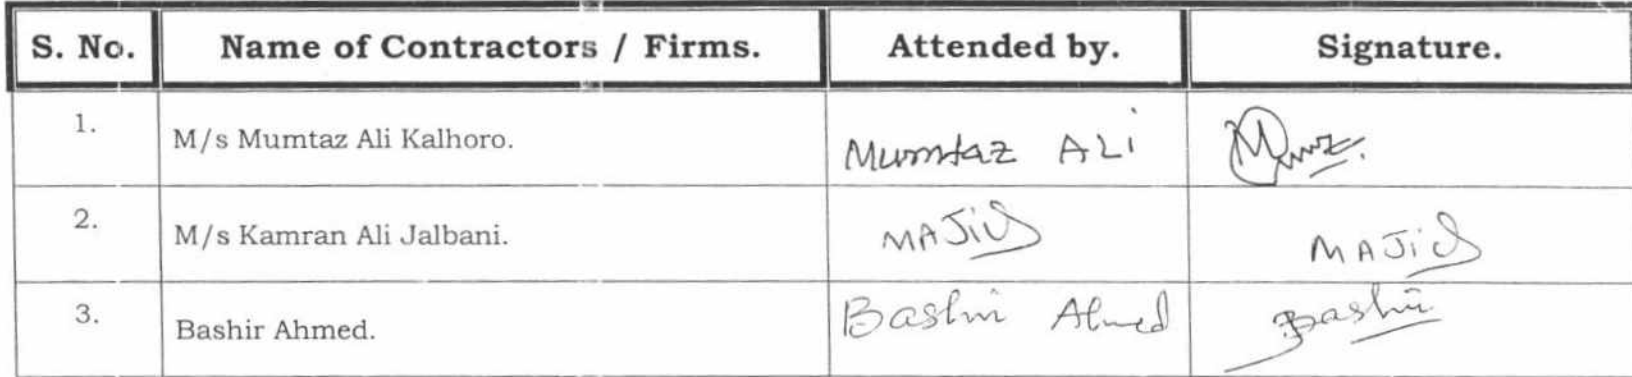 S. No. Name of Contractors / Firms. Attended by. Signature.
1. M/s Mumtaz Ali Kalhoro. Mumtaz ALi
2. M/s Kamran Ali Jalbani. MAJid MAJid
3. Bashir Ahmed. Bashir Ahmed Bashir